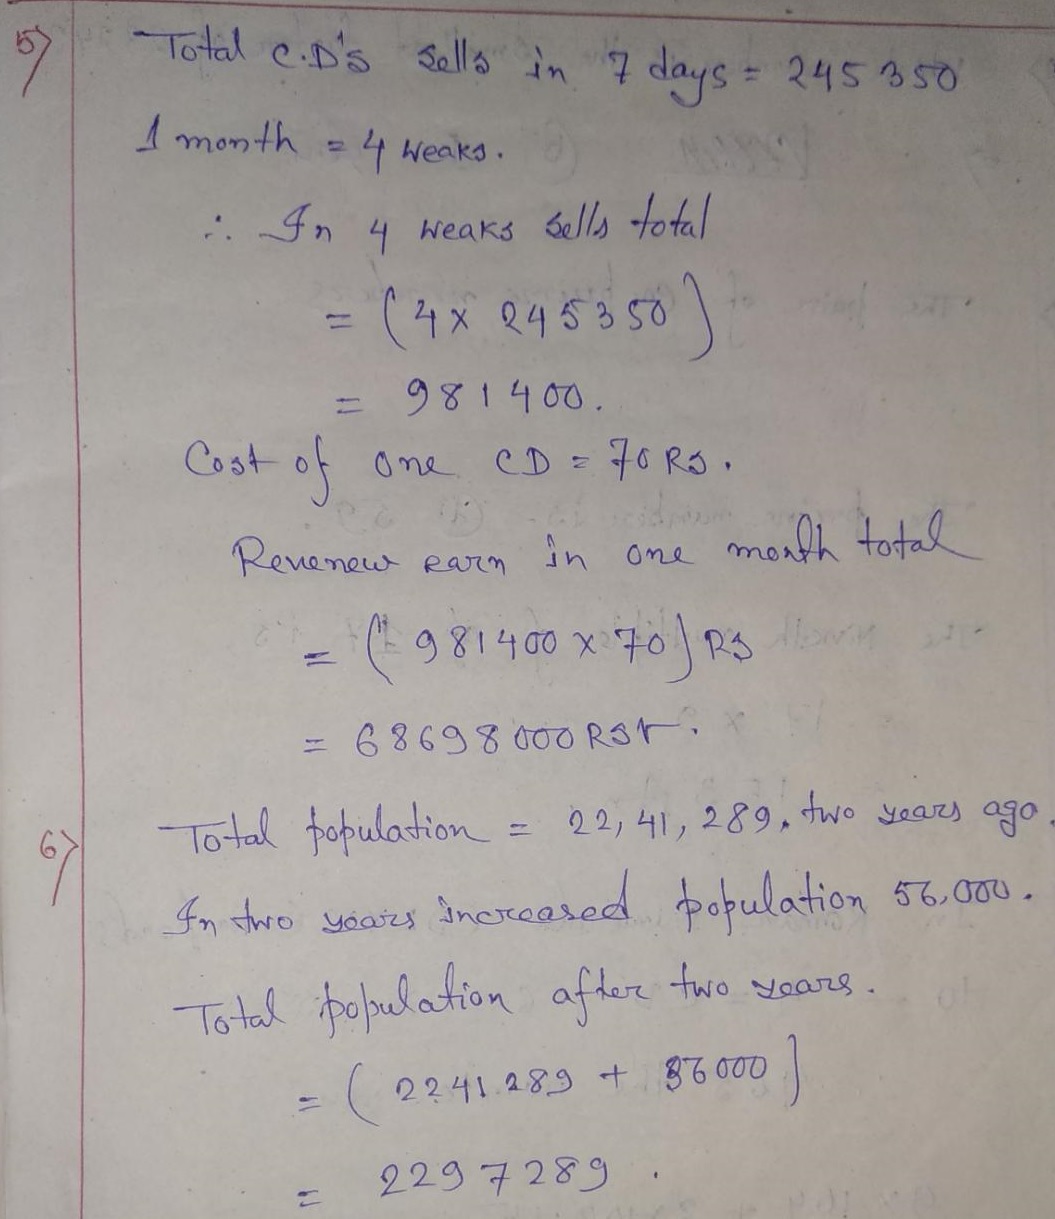 5) Total C.D's sells in 7 days = 245350
1 month = 4 weaks.
∴ In 4 weaks sells total
= (4 x 245350)
= 981400.
Cost of one CD = 70 RS.
Revenew earn in one month total
= (981400 x 70) RS
= 68698000 RS
6) Total population = 22,41,289, two years ago.
In two years increased population 56,000.
Total population after two years.
= (2241289 + 56000)
= 2297289.